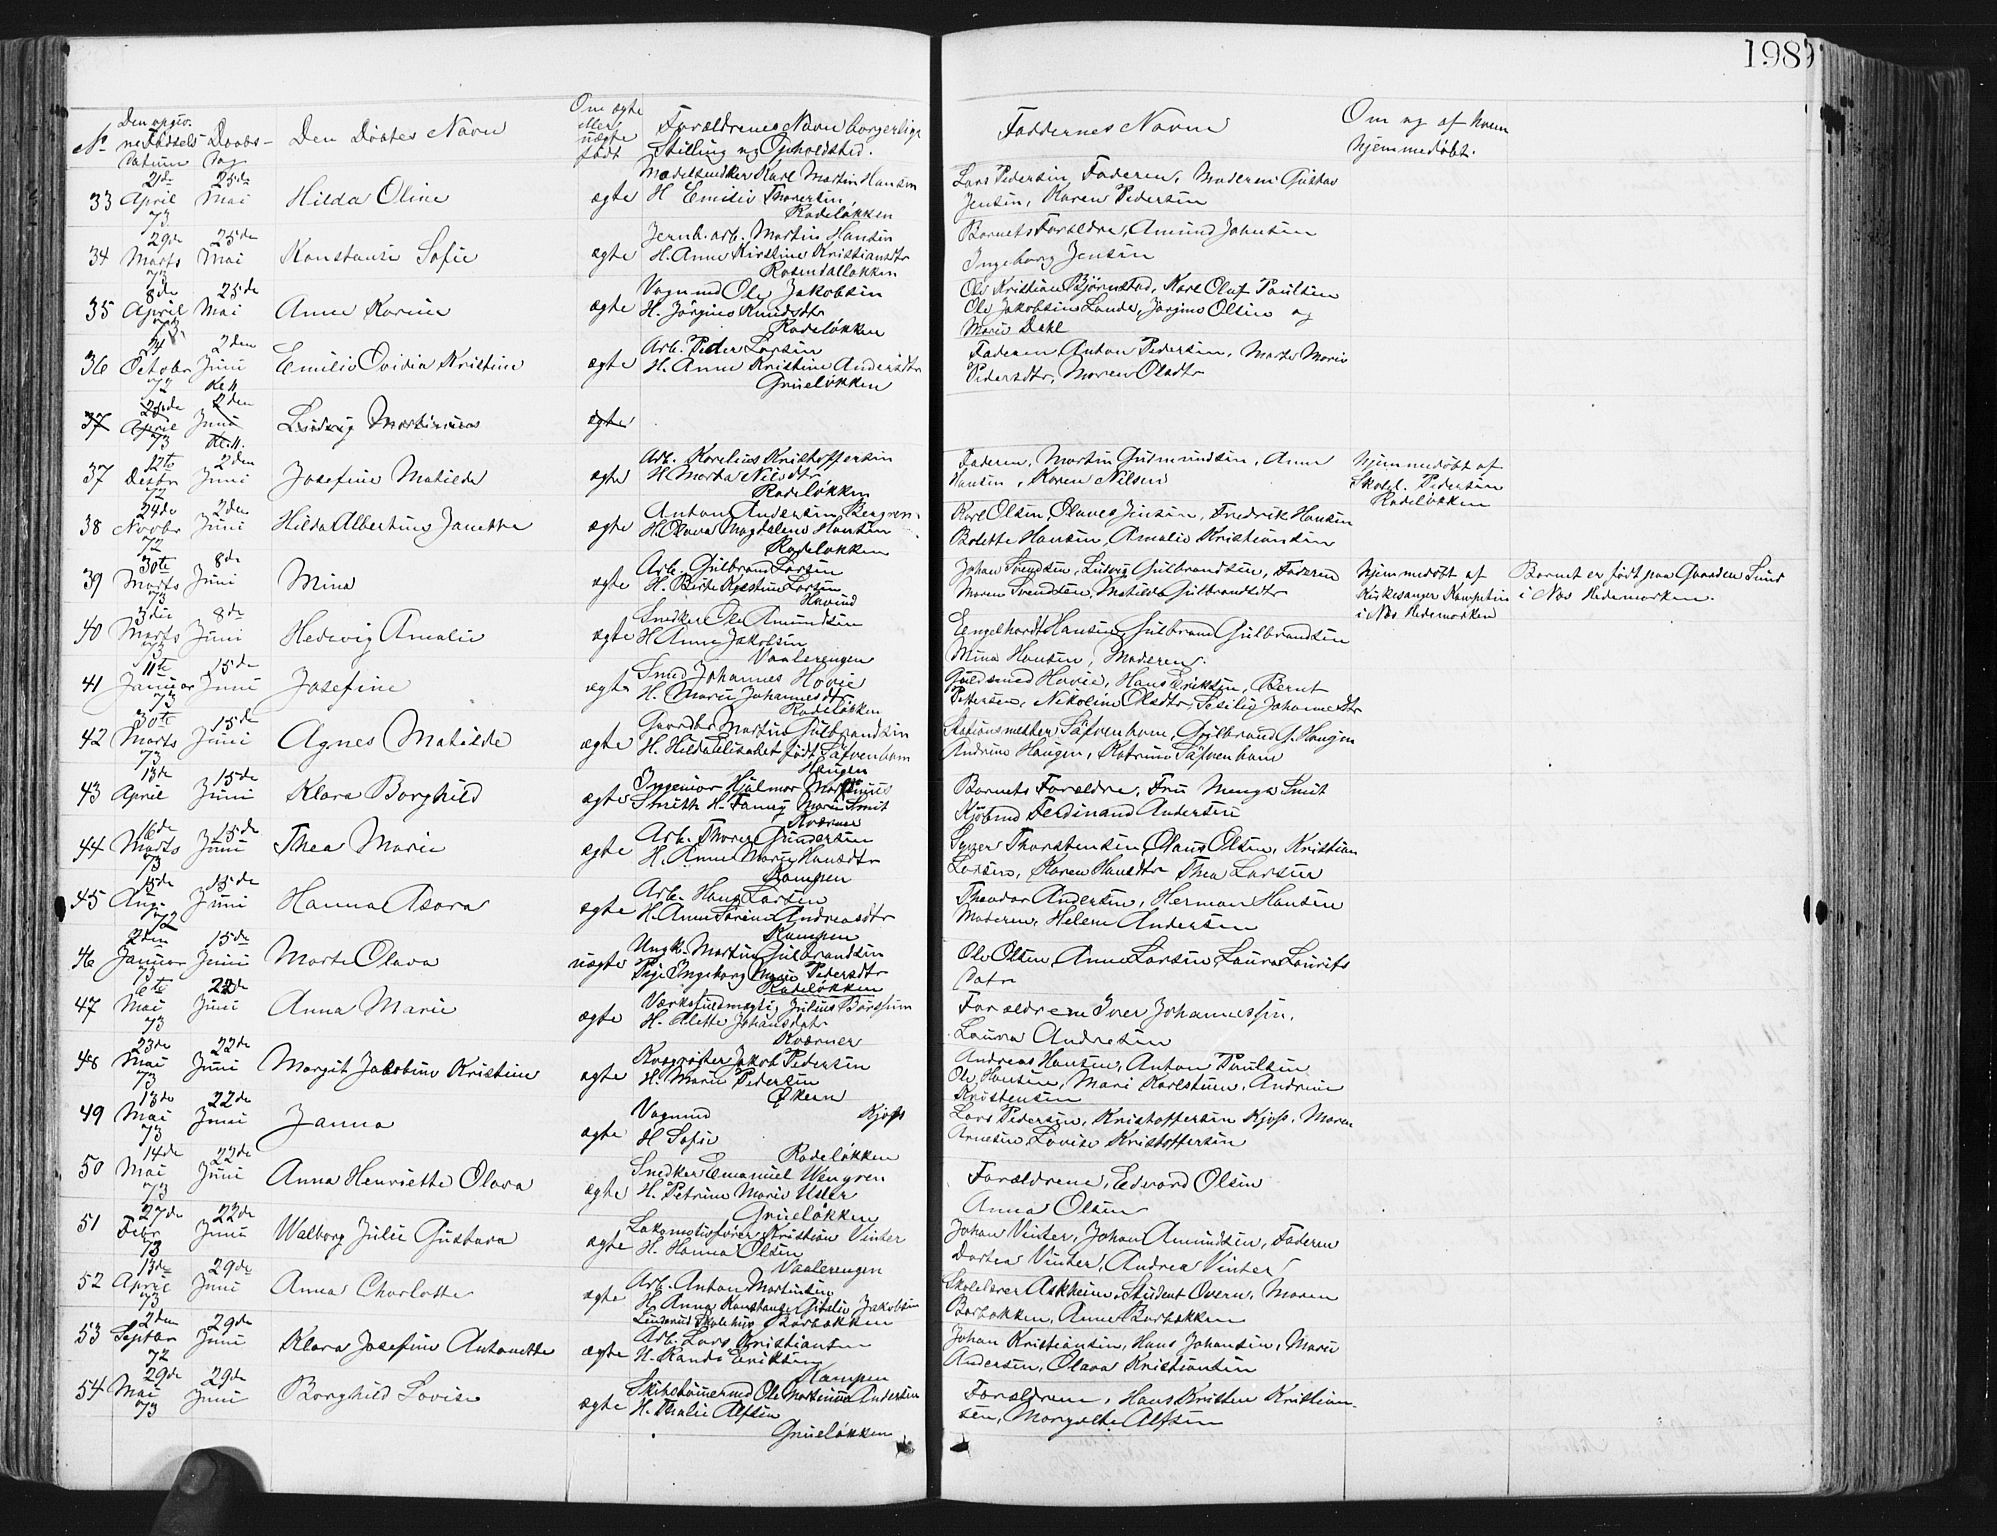 198
Den opgiv.
№ ne Fødsels- Daabs-
Datum Dag
Den Døbtes Navn
Om ægte
eller
uægte
født
Forældrenes Navn borgerlige
Stilling og Opholdsted.
Faddernes Navne
Om og af hvem
hjemmedøbt.
33 21de April 73 25de Mai Hilda Oline ægte
Modelsnedker Karl Martin Hansen
H. Emilie Thoresen,
Rodeløkken
Lars Pedersen, Faderen, Moderen Gustav
Jensen, Karen Pedersen
34 29de Marts 73 25de Mai Konstanse Sofie ægte
Jernb. arb. Martin Hansen
H. Anne Kirstine Kristiansdtr
Rosendalløkken
Barnets Forældre, Amund Johnsen
Ingeborg Jensen
35 8de April 73 25de Mai Anna Karine ægte
Vognmd Ole Jakobsen
H. Jörgine Knudsdtr
Rodeløkken
Ole Kristian Björnstad, Karl Oluf Paulsen
Ole Jakobsen Lande, Jörgine Olsen og
Marie Dahl
36 24 Octobr 72 2den Juni Emilie Ovidia Kristine ægte
Arb. Peder Larsen
H. Anne Kristine Andersdtr
Grueløkken
Faderen, Anton Pedersen, Marte Marie
Pedersdtr, Maren Olsdtr
37 April 73 2den Juni Kl. 11. Ludvig Martinius ægte
37 12te Decbr 72 2den Juni Josefine Matilde ægte
Arb. Karelius Kristoffersen
H. Marta Nilsdtr
Rodeløkken
Faderen, Martin Gudmundsen, Anne
Hansen, Karen Nilsen
Hjemmedøbt af
Skolel. Pedersen
Rodeløkken
38 24de Novbr 72 2den Juni Hilda Albertine Janette ægte
Anton Andersen Bergren
H. Olava Magdalene Hansen
Rodeløkken
Karl Olsen, Olaves Jensen, Fredrik Hansen
Bolette Hansen, Amalie Kristiansen
39 30te Marts 73 8de Juni Mina ægte
Arb. Gulbrand Larsen
H. Berte Kjestine Larsen
Hovind
Johan Svendsen, Ludvig Gulbrandsen, Faderen
Maren Svendsen, Matilde Gulbrandsdtr
Hjemmedøbt af
Kirkesanger
i Nøs Hedemarken
Barnet er født paa Gaarden
i Nøs Hedemarken.
40 3die Marts 73 8de Juni Hedevig Amalie ægte
Snedker Ole Amundsen
H. Anne Jakobsen
Vaalerengen
Engelhardt Hansen, Gulbrand Gulbrandsen
Mina Hansen, Moderen.
41 11te Januar 73 15de Juni Josefine ægte
Smed Johannes Hovie
H. Marie Johannesdtr
Rodeløkken
Guldsmed Hovie, Hans Eriksen, Bernt
Pettersen, Nikoline Olsdtr, Sesilie Johannesdtr
42 30te Marts 73 15de Juni Agnes Matilde ægte
Gaardbr Martin Gulbrandsen
H. Hilda Elisabet født Säfvenbom
Haugen
Stationsmester Säfvenbom, Gulbrand G. Haugen
Andrine Haugen, Katrine Säfvenbom
43 13de April 15de Juni Klara Borghild ægte
Ingeniør Hjalmar
Smith H. Fanny Marie Smit
Kværner
Barnets Forældre, Fru Menga Smit
Kjøbmd Ferdinand Andersen
44 16de Marts 73 15de Juni Thea Marie ægte
Arb. Thorer Gundersen
H. Anne Marie Hansdtr
Kampen
Syver Thorstensen, Olaus Olsen, Kristian
Larsen, Karen Hansdtr Thea Larsen
45 15de Aug. 72 15de Juni Hanna Asora ægte
Arb. Hans Larsen
H. Anne Sørine Andreasdtr
Kampen
Theodor Andersen, Herman Hansen
Moderen, Helene Andersen
46 2den Januar 73 15de Juni Marte Olava uægte
Ungk. Martin Gulbrandsen
Pige Ingeborg Marie Pedersdtr
Rodeløkken
Ole Olsen, Anne Larsen, Laura Laurits
Datr
47 6te Mai 73 22de Juni Anna Marie ægte
Værksfuldmægtig Julius Borssum
H. Alette Johansdatr
Kværner
Forældrene Iver Johannessen,
Laura Andresen
48 23de Mai 73 22de Juni Margit Jakobine Kristine ægte
Jakob Pedersen
H. Marie Pedersen
Økern
Andreas Hansen, Anton Paulsen
Ole Hansen, Mari Karlstuen, Andrine
Kristensen
49 13de Mai 73 22de Juni Janna ægte
Vognmd Kjøss
H. Sofie
Rodeløkken
Lars Pedersen, Kristoffersen Kjøss, Maren
Arnesen, Lovise Kristoffersen
50 14de Mai 73 22de Juni Anna Henriette Olava ægte
Snedker Emanuel Wengren
H. Petrine Marie Usler
Grueløkken
Forældrene, Edvard Olsen
Anna Olsen
51 27de Febr 73 22de Juni Walborg Julie Gustava ægte
Lokomotivfører Kristian Vinter
H. Hanna Olsen
Vaalerengen
Johan Vinter, Johan Amundsen, Faderen
Dortea Vinter, Andrea Vinter
52 13de April 73 29de Juni Anna Charlotte ægte
Arb. Anton Martinsen
H. Anna Konstanse Gitalie Jakobsen
Linderud Skolehus Borbakken
Skolelærer Askheim, Student Overn, Maren
Borbakken, Anne Borbakken
53 2den Septbr 72 29de Juni Klara Josefine Antonette ægte
Arb. Lars Kristiansen
H. Randi Eriksen
Kampen
Johan Kristiansen, Hans Johansen, Marie
Andersen, Olava Kristiansen
54 29de Mai 73 29de Juni Borghild Lovise ægte
Skibstømmermd Ole Martinius Andersen
H. Thalie Alfsen
Grueløkken
Forældrene, Hans Kristen Kristian-
sen, Margrethe Alfsen